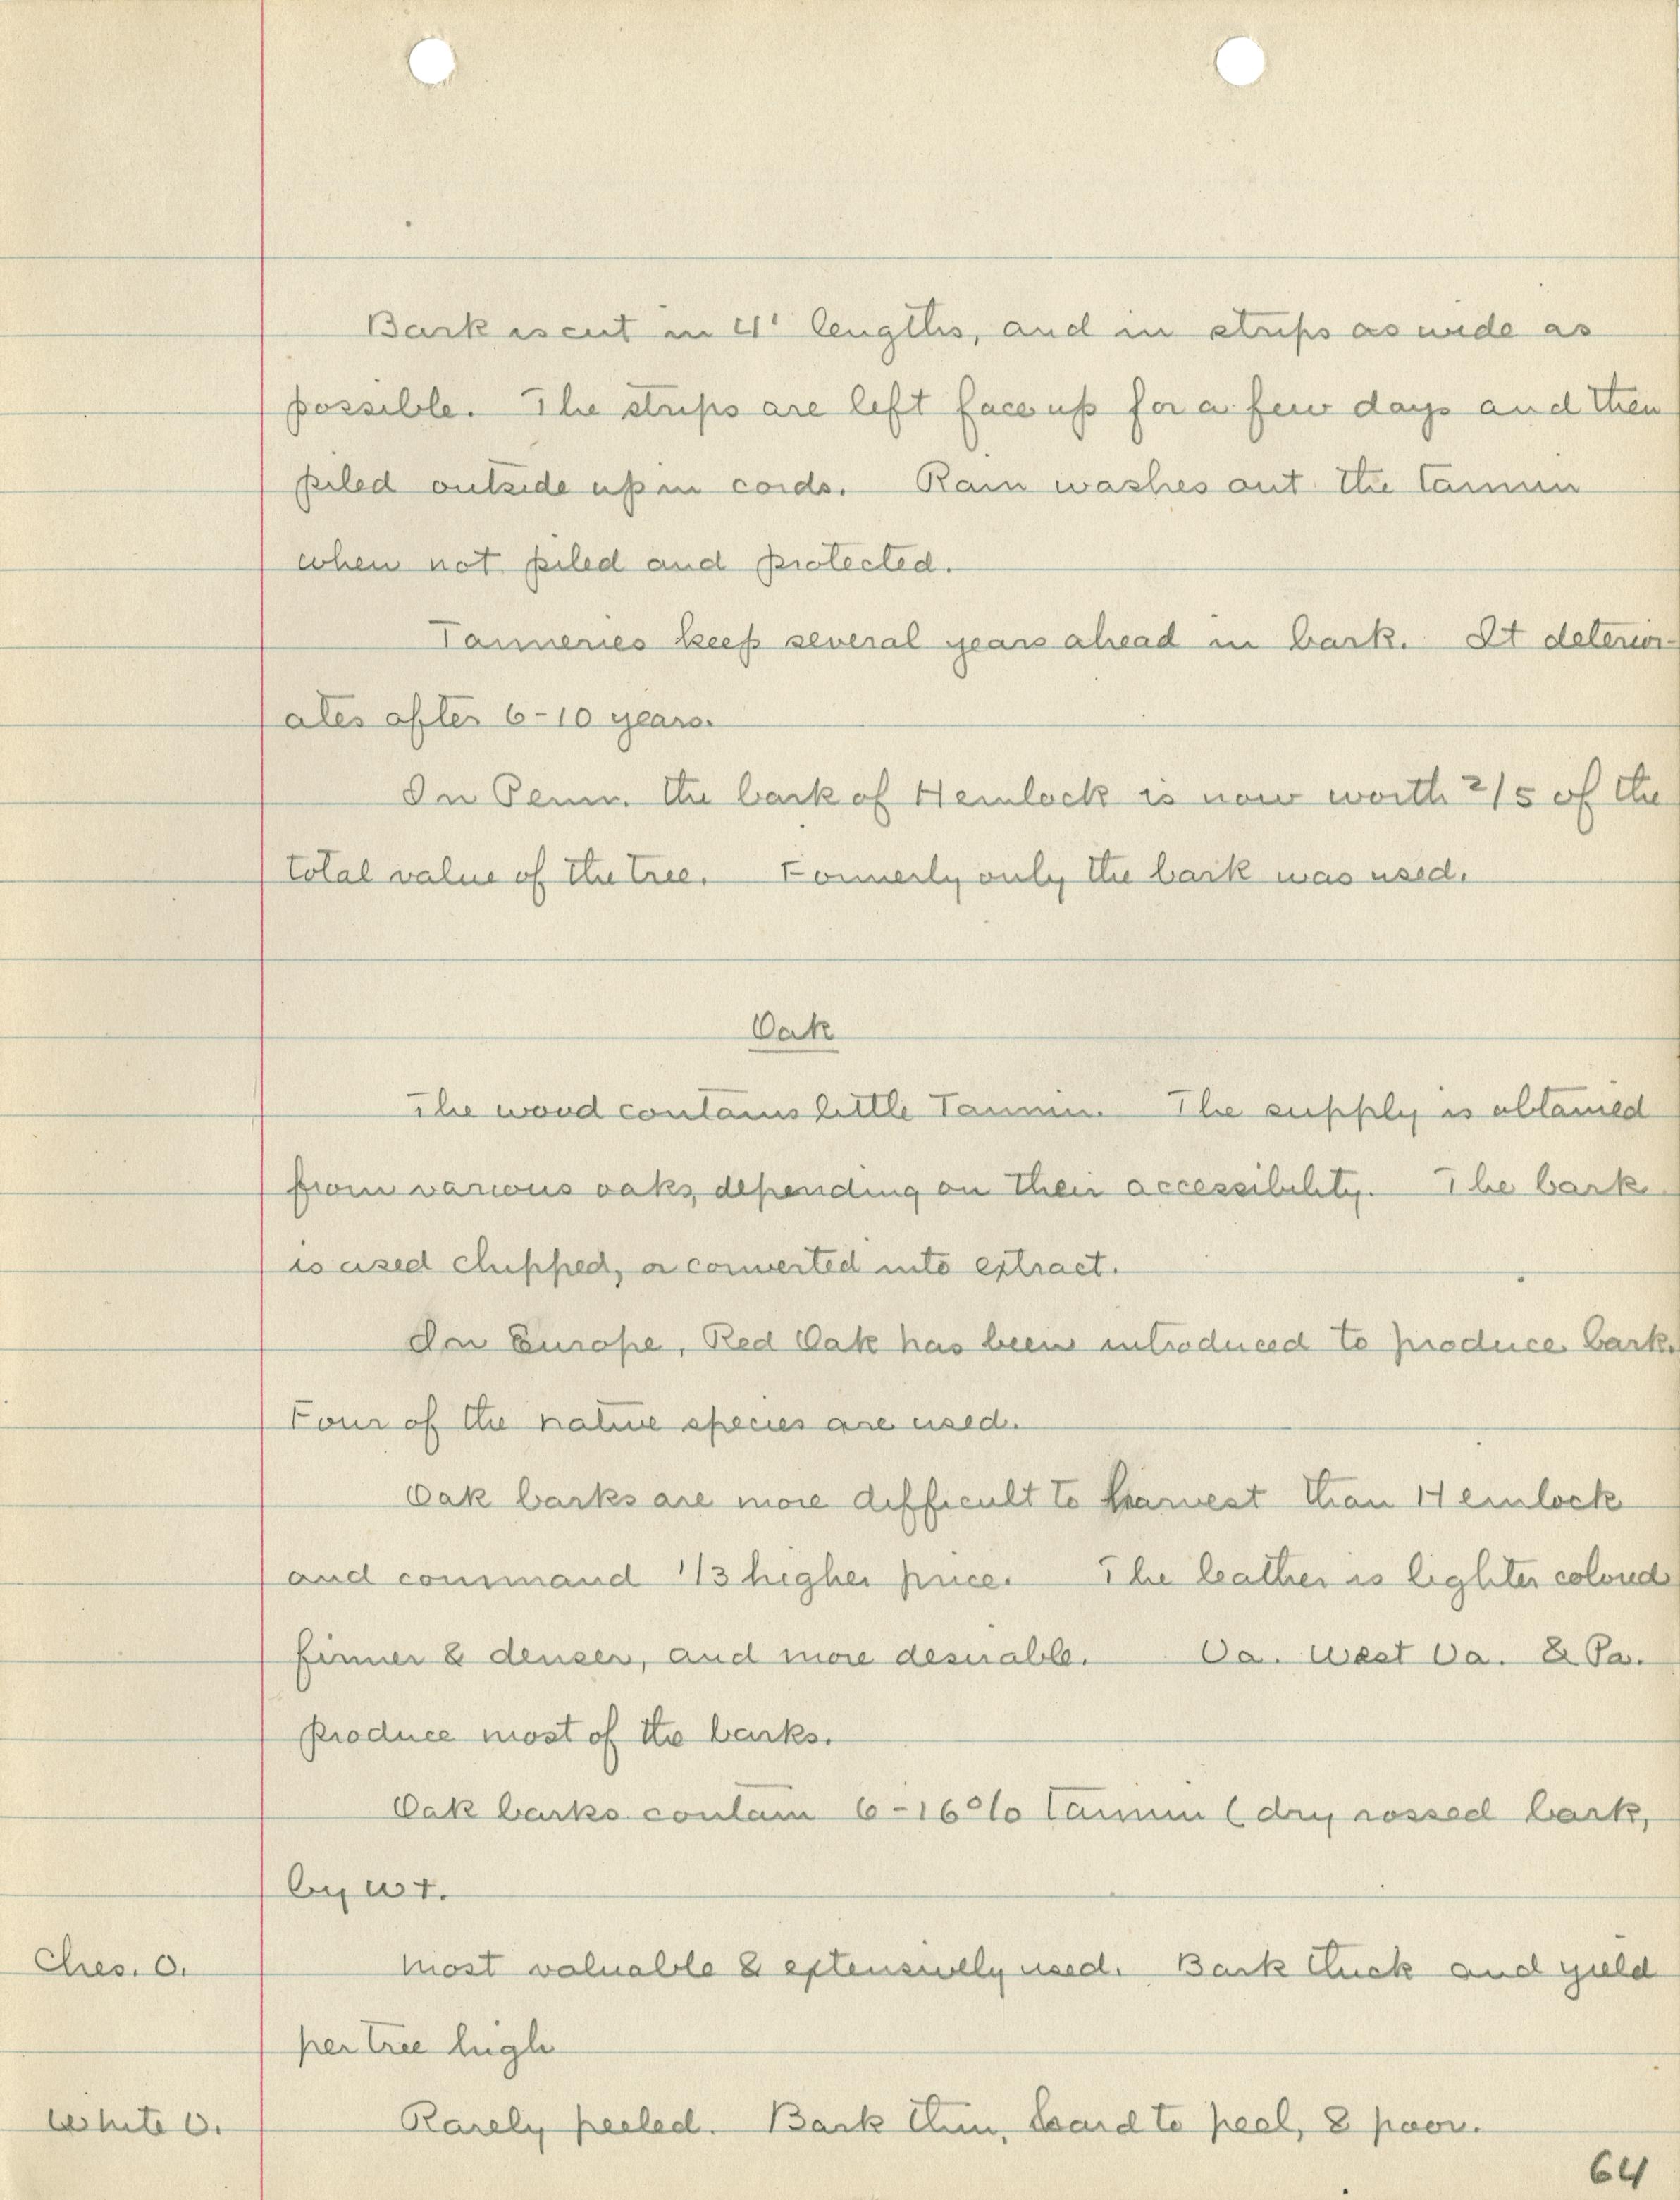 Bark is cut in 4' lengths, and in strips as wide as
possible. The strips are left face up for a few days and then
piled outside up in cords. Rain washes out the tannin
when not piled and protected.
Tanneries keep several years ahead in bark. It deterior-
ates after 6-10 years.
In Penn. the bark of Hemlock is now worth 2/5 of the
total value of the tree. Formerly only the bark was used.
Oak
The wood contains little Tannin. The supply is obtained
from various oaks, depending on their accessibility. The bark
is used chipped, or converted into extract.
In Europe, Red Oak has been introduced to produce bark.
Four of the native species are used.
Oak barks are more difficult to harvest than Hemlock
and command 1/3 higher price. The leather is lighter colored
firmer & denser, and more desirable. Va. West Va. & Pa.
produce most of the barks.
Oak barks contain 6-16% tannin (dry rossed bark,
by wt.
Ches. O. Most valuable & extensively used. Bark thick and yield
per tree high
White O. Rarely peeled. Bark thin, hard to peel, & poor.
64